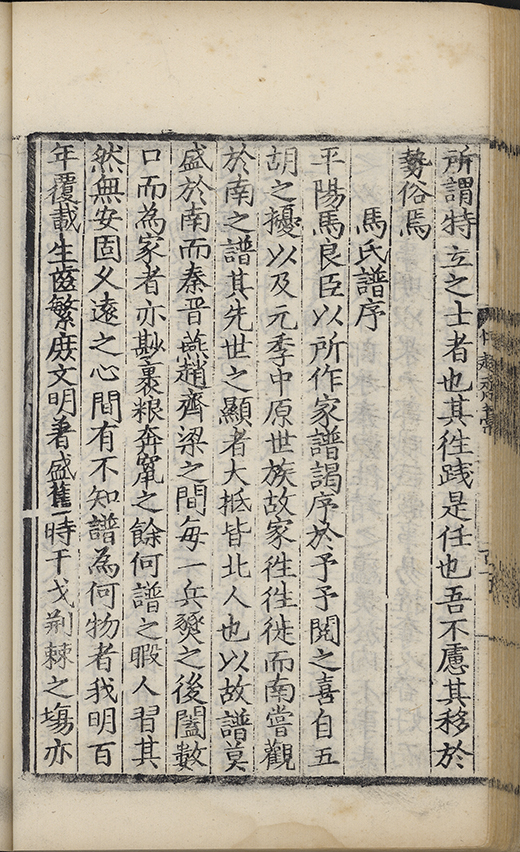 所謂特立之士者也其徃踐是任也吾不慮其移於
勢俗焉
馬氏譜序
平陽馬良臣以所作家譜謁序於予予閱之喜自五
胡之擾以及元季中原世族故家徃徃徙而南嘗觀
於南之譜其先世之顯者大抵皆北人也以故譜莫
盛於南而秦晉燕趙齊梁之間每一兵燹之後闔數
口而為家者亦尠裹粮奔竄之餘何譜之暇人習其
然無安固久遠之心間有不知譜為何物者我明百
年覆載生齒繁庶文明著盛舊時干戈荆棘之塲亦